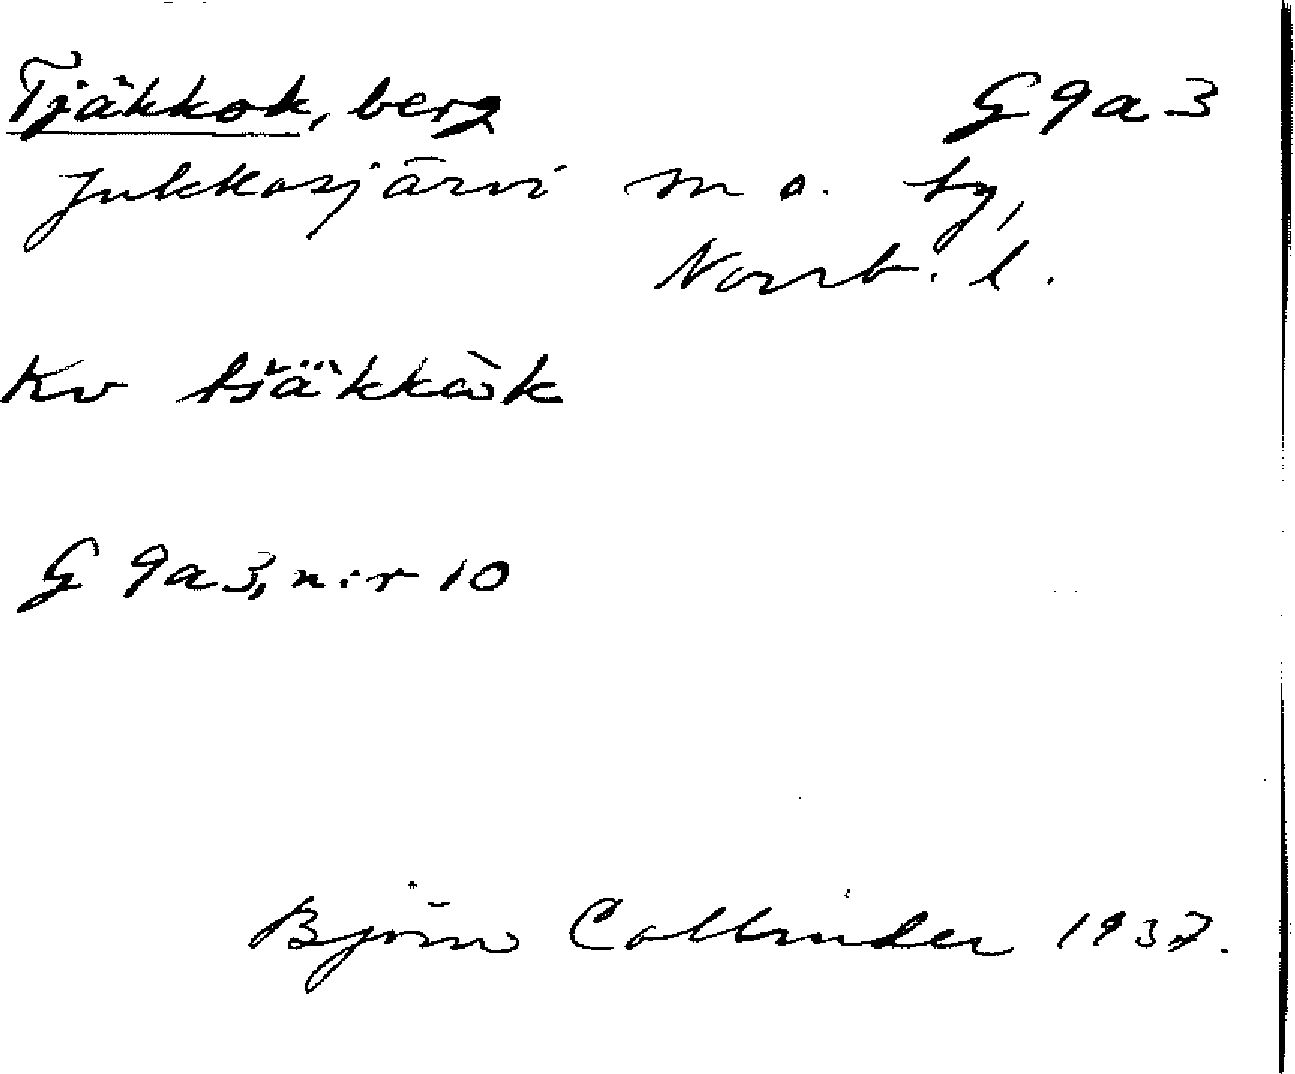 Tjäkkok, berg G 9 a 3
Jukkasjärvi m o. by,
Norrb. l.
Kv
G 9 a 3, n:r 10
Björn Collinder 1937.